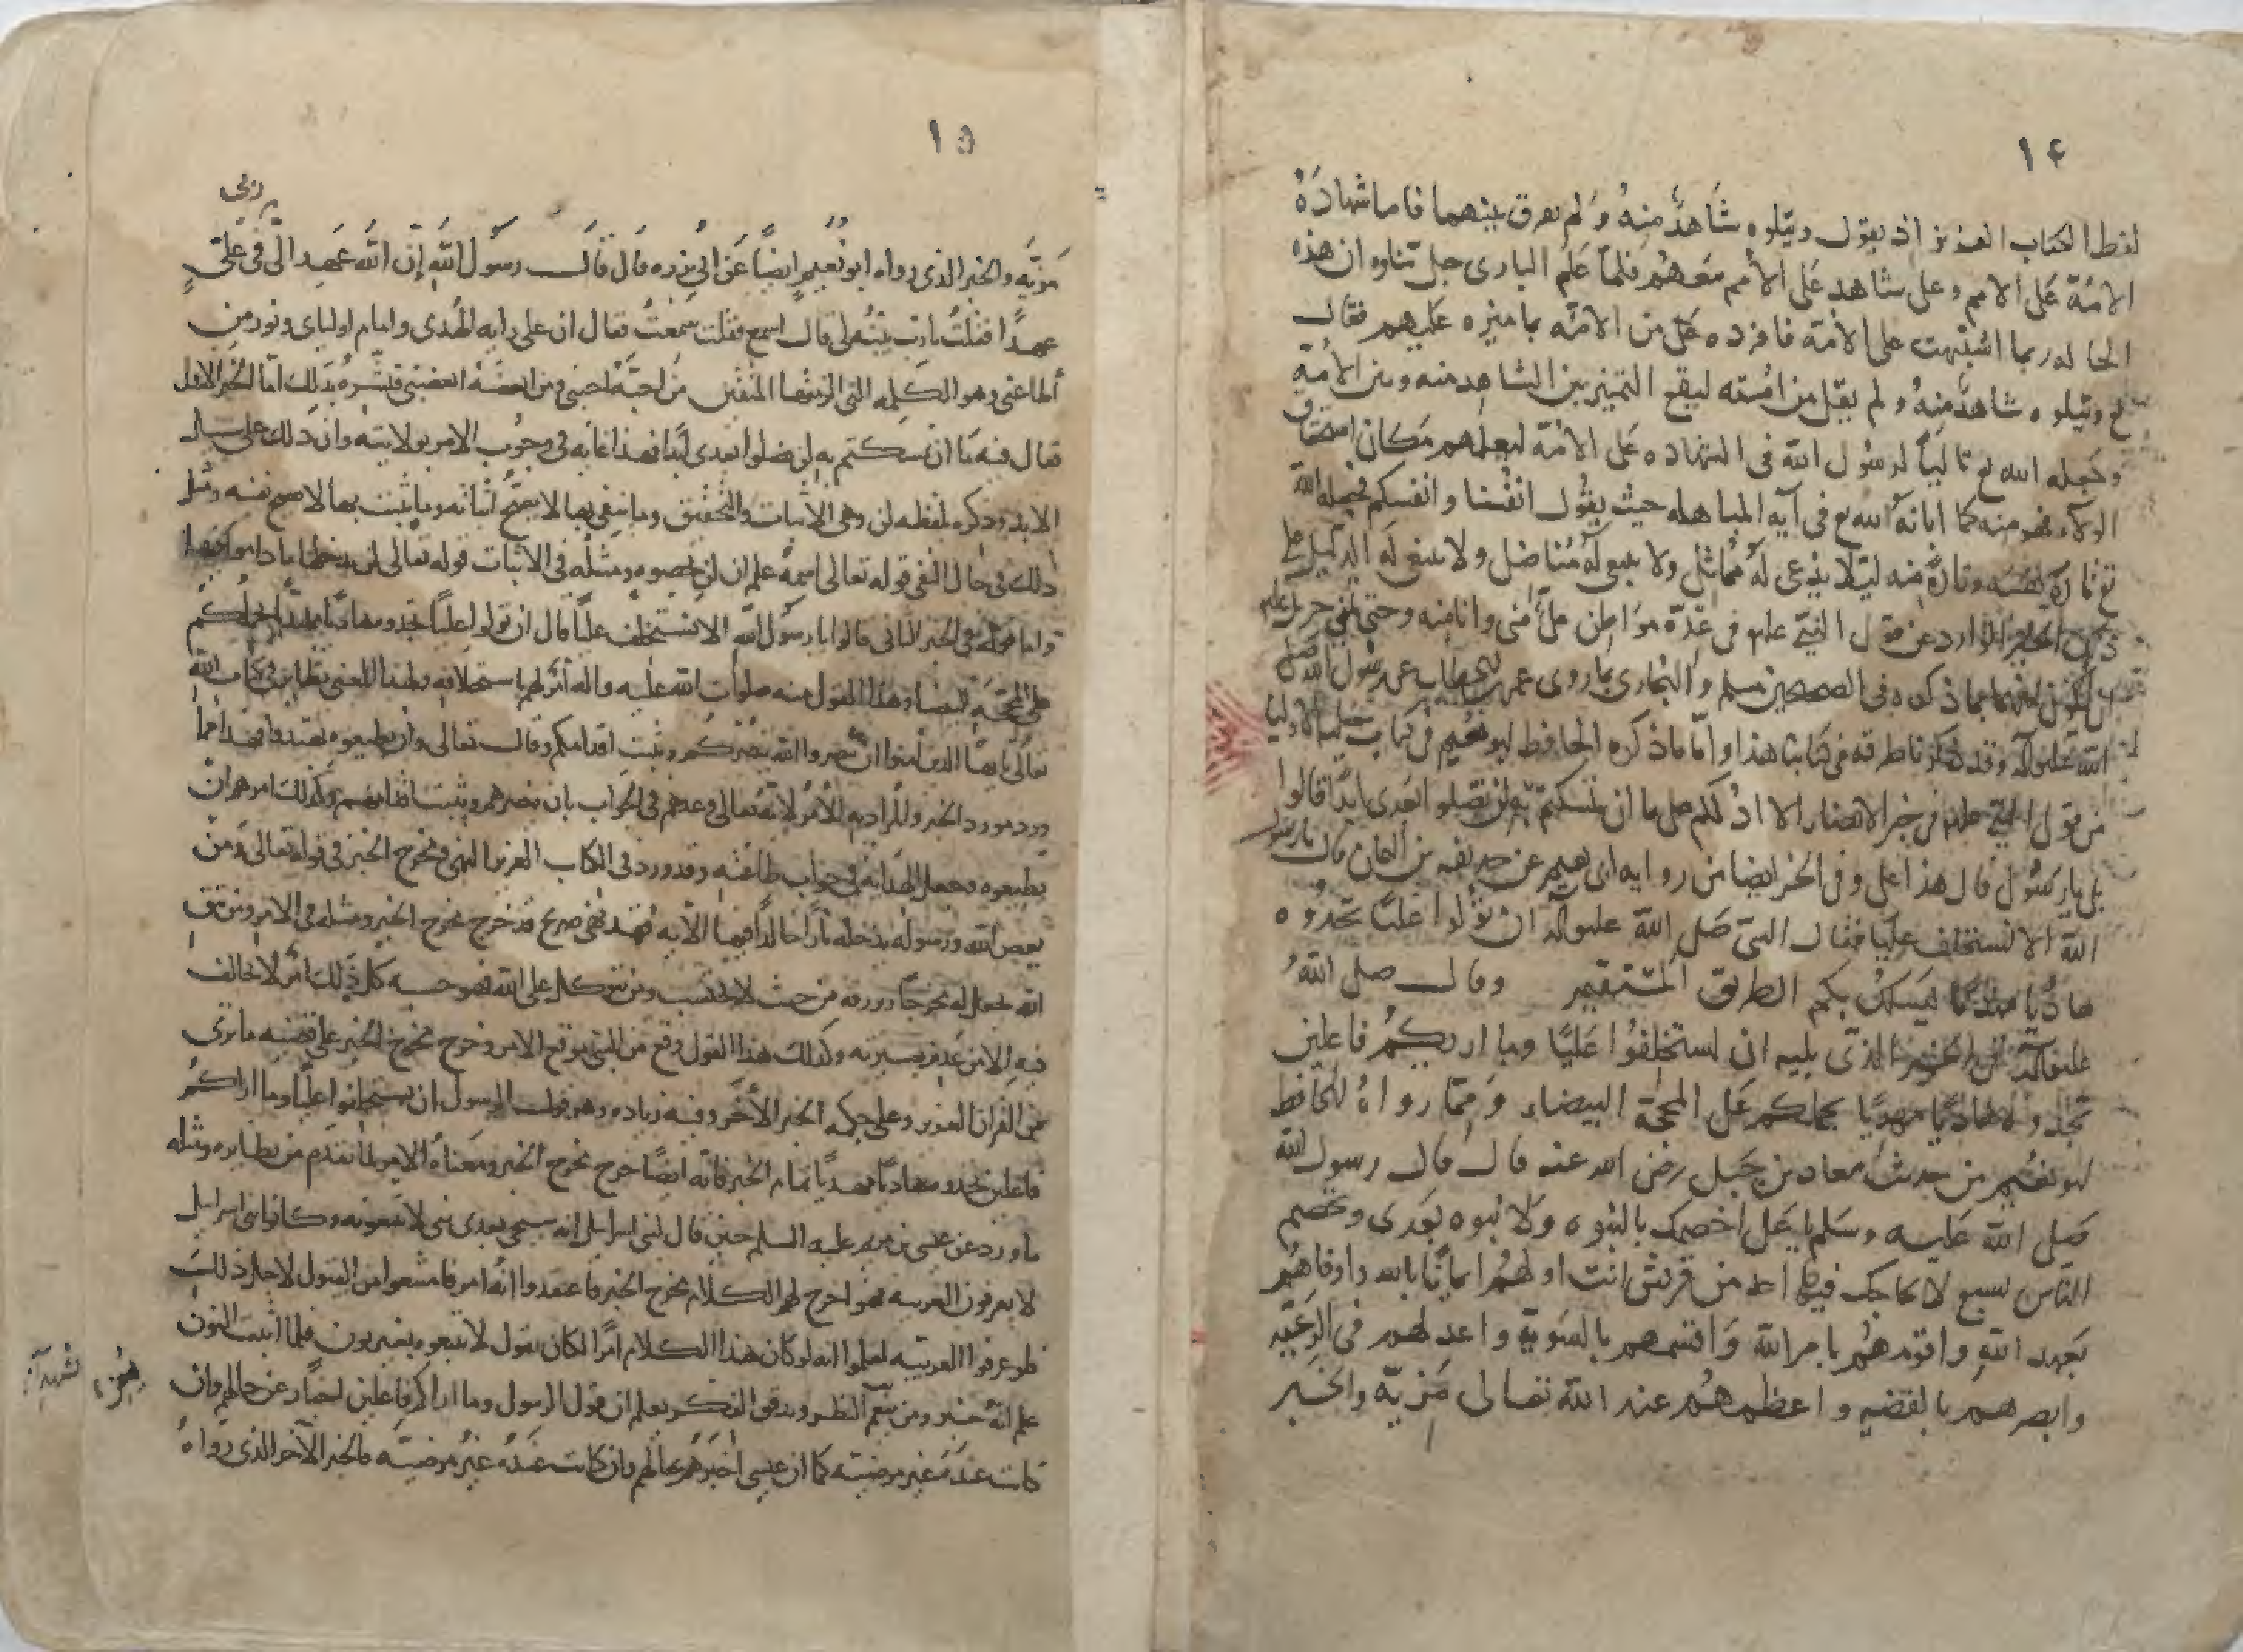 ١٤
لفظ الكتاب العزيز اذ يقول ويتلوه شَاهدٌ منهُ وَلم يفرق بينهما فاما شهادَةُ
الامّة عَلى الامم وعلى شاهد عَلى الأمم مَعهُم فلمّا عَلم البارى جل ثناوه ان هذه
الحاله ربما اشتبهت على الامّة فافرده عَلى من الامّه بما ميزه عَليهم فقال
تع ويتلوه شاهدٌ منهُ ولم يقل من امّته ليقع التميز بين الشاهد منه وبين الأمة
وجعله الله تع تاليًا لرسُول الله فى الشهاده عَلى الامّة ليعلمهم مكان استحقاق
الولاء فهو منه كما ابانه الله تع فى آيه المباهله حيث يقُول انفسنا وانفسكم فجعله الله
تع تارة نفسه وتارةً منه ليَلا يدّعى لَه مُماثل ولا يبغى لَه مُناضل ولا ينبغى له الدليل على
ذلك الخبر الوارد عن قول النبىّ علم فى عدّه مَوَاطن علىٌّ منى وانا منه وحتى
فى الصحيحين مسلم والبخارى بما روى عمر بن الخطاب عن رسُول الله صَلى
الله عَليه وآله وقد ذكرنا طرقه فى كتابنا هذا وامّا ما ذكره الحافظ ابو نعيم فى كتاب حليه الاوليا
من قول النبى علم فى خبر الانصار الا ادلكم على ما ان تمسكتم به لن تضلوا بعدى ابدًا قالوا
بلى يا رسُول قال هذا على وفى الخبر ايضا من روايه ابى نعيم عن حذيفه بن اليمان قال يا رسول
الله الا تستخلف عليا فقال النبى صَلى الله عليه وآله ان تولوا عليًا تجدوه
هاديًا مهديًا يَسلك بكم الطريق المستقيم وقال صلى اللهُ
عليه وآله فى الخبر الذى يليه ان تستخلفُوا عَليًّا وما اراكمُ فاعلين
تجدوه هاديًا مهديًا يحملكم عَلى المحجّة البيضاء وَمّما رواهُ الحافظ
ابو نعُيم من حديث معاد بن جَبل رضى الله عنه قال قال رسول الله
صَلى الله عَليه وسَلم يا عَلى اخصمك بالنبوه وَلا نبوه بَعدى وتخصم
النّاس بسبع لا يحاجك فيها احد من قريش انت اولهُم ايمانًا بالله واوفاهُم
بَعهد اللهِ واقومهُم بامرالله وَاقسمهم بالسَويّة واعدلهم فى الرَعيّه
وابصرهم بالقضيه واعظمهُم عند الله تعالى مَزيّه والخبَر
١٥
مَزيّه والخبر الذى رواه ابو نُعيمٍ ايضًا عَن ابى بَرزه قال قالَ رسُول الله اِنّ الله عَهِد الىّ فى عَلىٍّ
عهدًا فقلتُ يارب بيّنه لى قال اسمع فقلت سَمعتُ فقال ان على رايه الهُدى وامام اوليائ ونور من
أطاعنى وهو الكَلمه التى الزمتها المتقين مَن احبّهُ احبنى ومن ابغضَهُ ابغضنى فبَشرهُ بذلك امّا الخبر الاول
فقال فيه مَا ان تمسكتم به لن تضلوا بعدى ابدًا فهذا غايه فى وجُوب الامر بولايته وان ذلك على سبيل
الابد وذكره بلفظه لن وهى الاثبات والتحقيق وما ينفى بها لا يصحُّ اثباته وما يثبت بها لا يصح نفيه ومثل
ذلك فى حال النفى قوله تعالى اسمهُ علم ان لن تحصوه ومثلهُ فى الاثبات قوله تعالى لن ندخلها ما داموا فيها
واما قوله فى الخبر الثانى قالوا يا رسُول الله الا تستخلف عليًّا قال ان تولوا عليًا تجدوه هاديًا مهديًا يحملكم
على المحجّة البيضا وهذا القول منه صلوات الله عليه واله أمرٌ لهم باستخلافه ولهذا المعنى نظائر فى كتاب الله
تعالى يا ايها الذين آمنوا ان تنصروا الله ينصُركم ويثبت اقدامكم وقال تعالى وان تطيعوه تهتدوا فهذا مما
ورد مورد الخبر والمراد به الأمرُ لانه تعالى وعدهم فى الجواب بان ينصرهم ويثبت اقدامهم وكذلك امرهم ان
يطيعوه وجعل الهدايه فى جواب طاعته وقد ورد فى الكتاب العزيز النهى مخرج الخبر فى قوله تعالى وَمن
يعص الله ورسوله يدخله نارًا خالدًا فيها الآيه فهَذ نهى صريح قد خرج مخرج الخبر ومثله فى الامر ومن يتق
الله يجعل له مخرجًا ويرزقه من حيث لا يحتسب ومن يتوكل على الله فهو حسبه كل ذلك امرٌ لا يخالف
وكذلك هذا القول وقع من النبى موقع الامر وخرج مخرج الخبر على قضيه ما ترى
من القران العزيز وعلى حكمه الخبر الأخَر وفيه زياده وهو قول الرسول ان تستخلفوا عليًا وما اراكمُ
فاعلين تجدوه هاديًا مهديًا تمام الخبر فانّه ايضًا خرج مخرج الخبر ومعناه الامر لما تقدم من نظائره ومثله
ما ورد عن عيسى بن مريم عليه السلم حين قال لبنى اسرايل انه سيجى بعدى نبى لا تتبعونه وكانوا بنى اسرايل
لا يعرفون العربيه فهو اخرج لهم الكلام مخرج الخبر فاعتقدوا انّهُ امر فامتنعوا من القبول لاجل ذلكَ
فلو عرفوا العربيّه لعلموا انه لو كان هذا الكلام امرًا لكان يقول لا تتبعوه بغير نون فلما اثبت النون
علم انّهُ خبر ومن ينعم النظر ويدقق الفكر يعلم ان قول الرسول وما اراكم فاعلين اخبارٌ عن حالهم وان
كانت عندَه غير مرضيّه كما ان عيسى اخبَرهُم بحالهم وان كانت عندَهُ غير مرضيّه والخبر الآخر الذى رواهُ